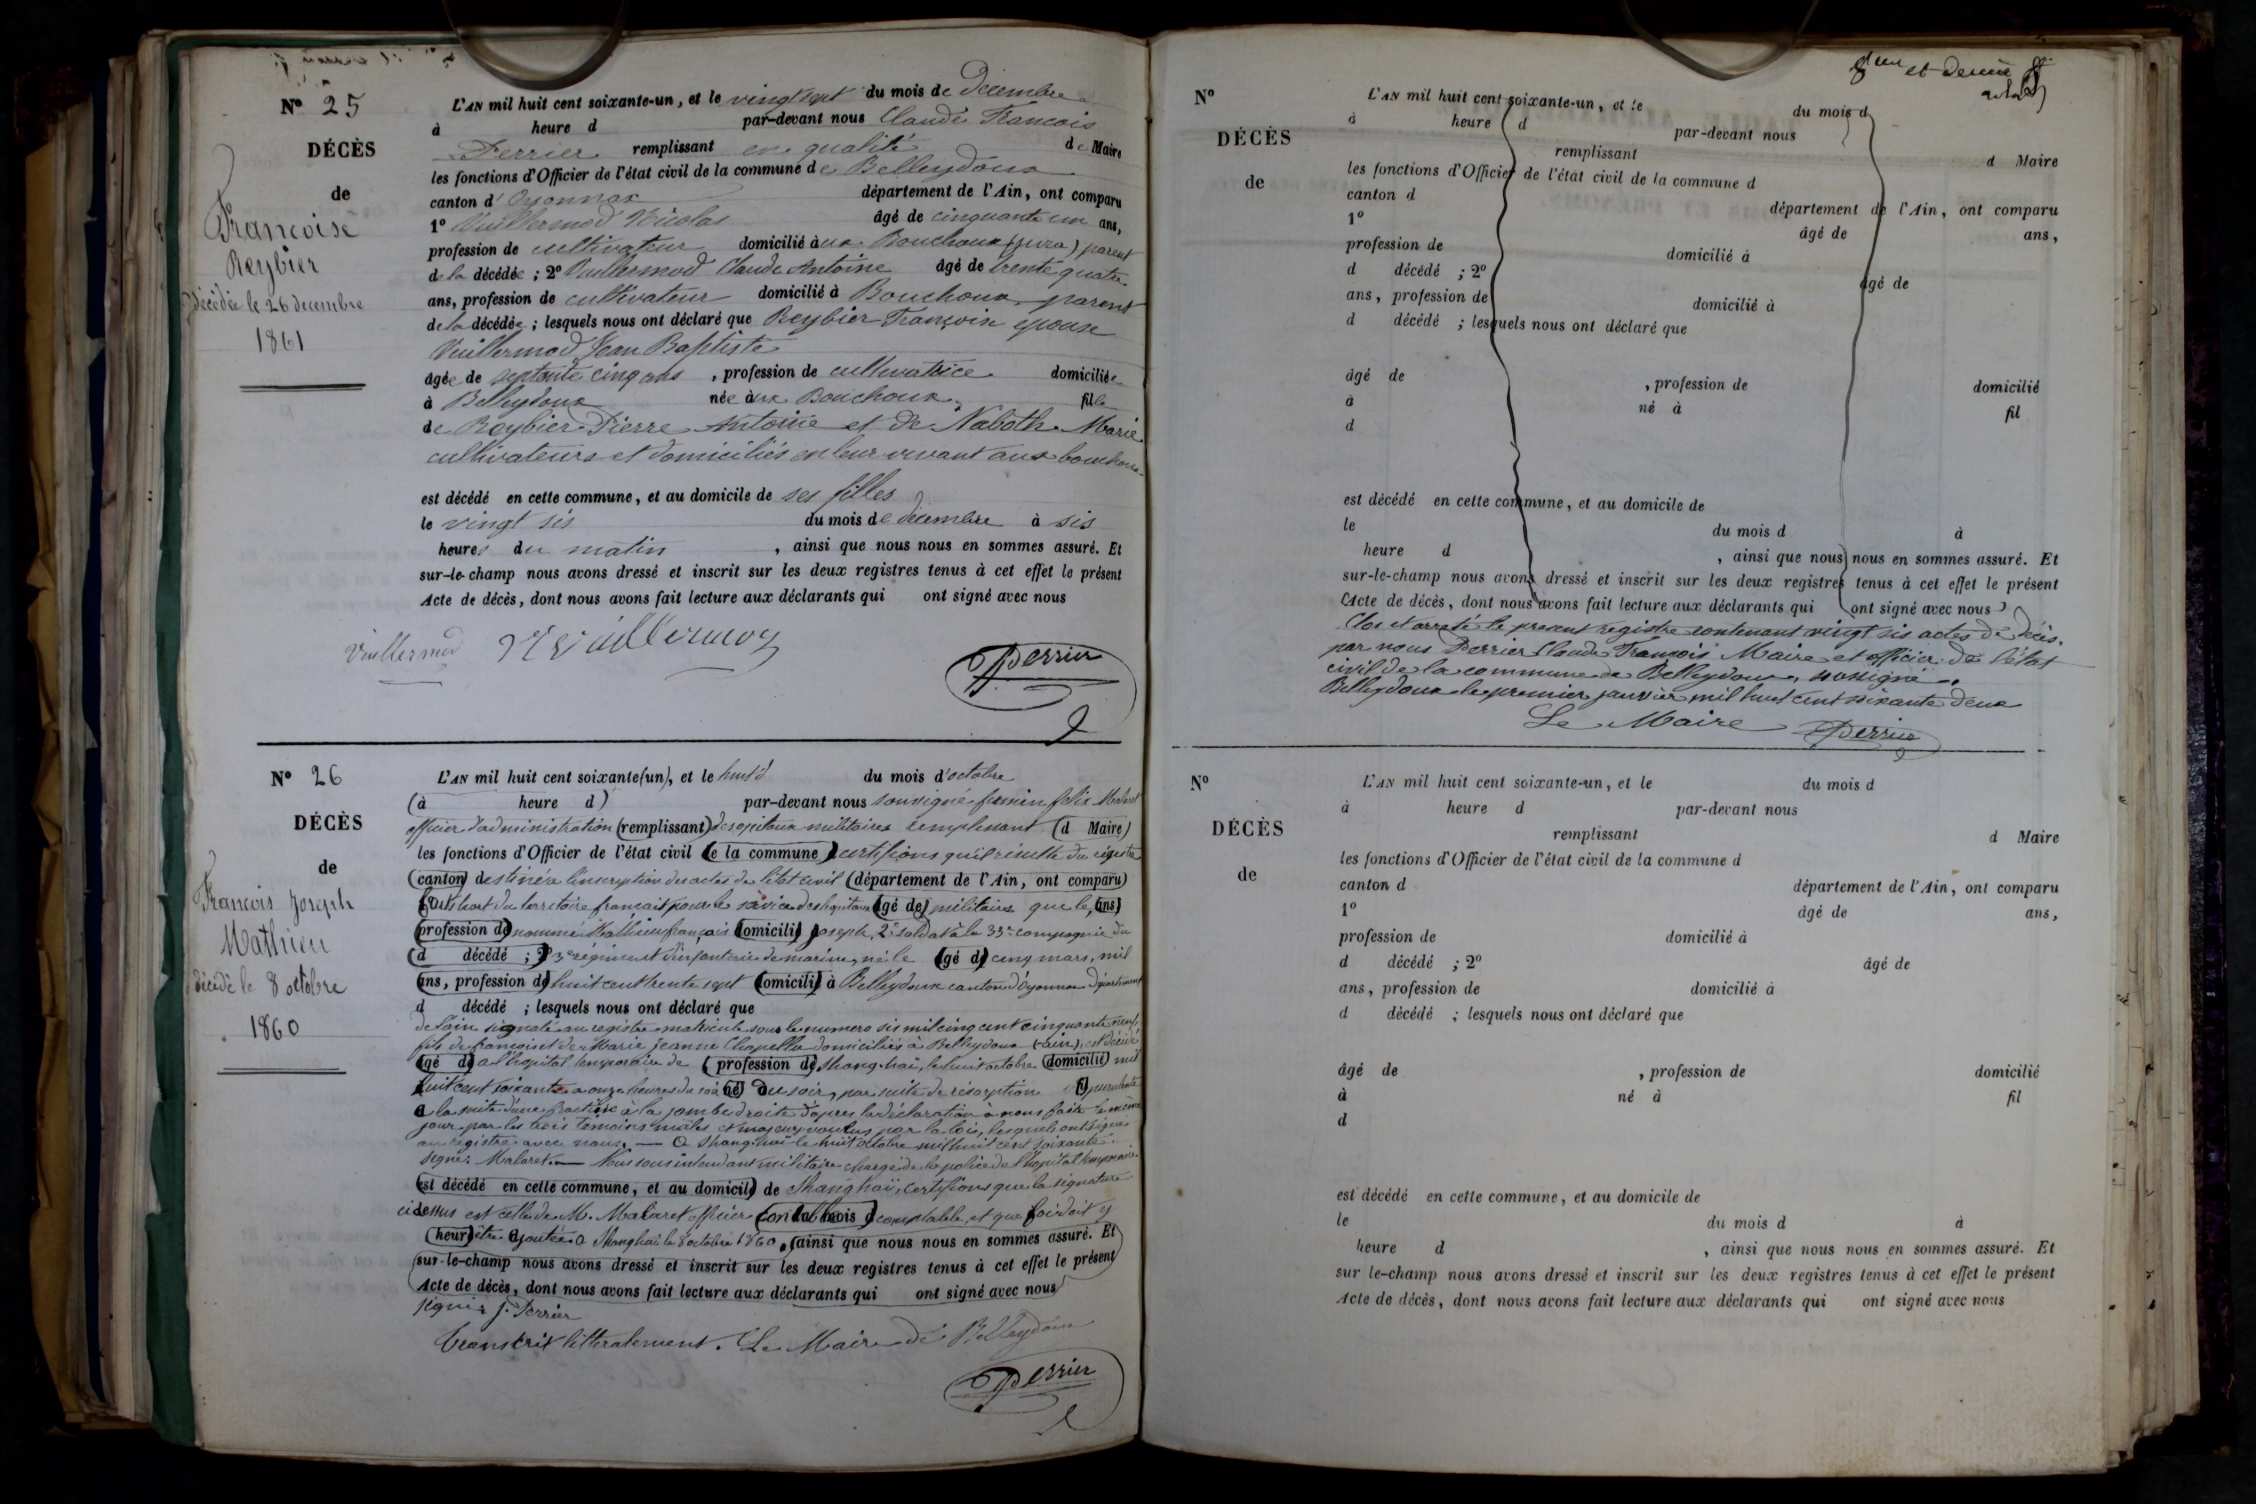 Nº 25
DÉCÈS
de
Francoise
Reybier
décédée le 26 decembre
1861
L'AN mil huit cent soixante-un, et le vingt sept du mois de Décembre
à heure d par-devant nous Claude Francois
Perrier remplissant en qualité de Maire
les fonctions d'Officier de l'état civil de la commune de Belleydoux
canton d'Oyonnax département de l'Ain, ont comparu
1º Vuillermod Nicolas âgé de cinquante un ans,
profession de cultivateur domicilié aux Bouchoux (jura) parent
de la décédée ; 2º Vuillermod Claude Antoine âgé de trente quatre
ans, profession de cultivateur domicilié à Bouchoux parent
de la décédée ; lesquels nous ont déclaré que Reybier Françoise epouse
Vuillermod Jean Baptiste
âgée de septante cinq ans , profession de cultivatrice domiciliée
à Belleydoux née aux Bouchoux, fille
de Reybier Pierre Antoine et de Naboth Marie
cultivateurs et domiciliés en leur vivant aux bouchoux
est décédé en cette commune, et au domicile de ses filles
le vingt sis du mois de décembre à sis
heures du matin , ainsi que nous nous en sommes assuré. Et
sur-le-champ nous avons dressé et inscrit sur les deux registres tenus à cet effet le présent
Acte de décès, dont nous avons fait lecture aux déclarants qui ont signé avec nous
Vuillermod Vuillermoz Perrier
Nº 26
DÉCÈS
de
Francois Joseph
Mathieu
décédé le 8 octobre
1860
L'AN mil huit cent soixante(un), et le huit du mois d'octobre
(à heure d) par-devant nous soussigné firmin felix Malaret
officier d'administration (remplissant) des hopitaux militaires remplissant (d Maire)
les fonctions d'Officier de l'état civil (de la commune) certifions qu'il résulte du registre
(canton) destiné à l'inscription des actes de l'état civil (département de l'Ain, ont comparu)
faits hors du territoire français pour le service des hopitaux (âgé de) militaires que le (ans)
(profession de) nommé Mathieu françois (domicilié) Joseph, 2e soldat à la 33e compagnie du
(d décédé ; 2º) 3e régiment d'infanterie de marine, né le (âgé de) cinq mars, mil
(ans, profession de) huit cent trente sept (domicilié) à Belleydoux canton d'Oyonnax département
d décédé ; lesquels nous ont déclaré que
de l'ain signalé au registre matricule sous le numero sis mil cinq cent cinquante neuf,
fils de françois et de Marie Jeanne Chapelle domiciliés à Belleydoux (ain), est décédé
(âgé de) a l'hopital temporaire de (profession de) Shang-haï, le huit octobre (domicilié) mil
huit cent soixante a onze heures du soir (né) du soir, par suite de résorption (fil) purulente
à la suite d'une fracture à la jambe droite d'après la déclaration à nous faite le même
jour par les trois témoins mâles et majeurs voulus par la loi, lesquels ont signé
au registre avec nous. — a Shang-haï le huit octobre mil huit cent soixante.
signé: Malaret. — Nous sous intendant militaire chargé de la police de l'hopital temporaire
(est décédé en cette commune, et au domicile) de Shanghaï, certifions que la signature
ci dessus est celle de M. Malaret officier (du mois d) comptable, et que foi doit y
(heure) être ajoutée. a Shanghaï le 8 octobre 1860. (ainsi que nous nous en sommes assuré. Et
sur-le-champ nous avons dressé et inscrit sur les deux registres tenus à cet effet le présent
Acte de décès, dont nous avons fait lecture aux déclarants qui ont signé avec nous)
signé: J. Perrier
Transcrit litteralement. Le Maire de Belleydoux
Perrier
et dernier
Nº
DÉCÈS
de
L'AN mil huit cent soixante-un, et le du mois d
à heure d par-devant nous
remplissant d Maire
les fonctions d'Officier de l'état civil de la commune d
canton d département de l'Ain, ont comparu
1º âgé de ans,
profession de domicilié à
d décédé ; 2º âgé de
ans, profession de domicilié à
d décédé ; lesquels nous ont déclaré que
âgé de , profession de domicilié
à né à fil
d
est décédé en cette commune, et au domicile de
le du mois d à
heure d , ainsi que nous nous en sommes assuré. Et
sur-le-champ nous avons dressé et inscrit sur les deux registres tenus à cet effet le présent
Acte de décès, dont nous avons fait lecture aux déclarants qui ont signé avec nous
Clos et arreté le present registre contenant vingt sis actes de décès.
par nous Perrier Claude François Maire et officier de l'état
civil de la commune de Belleydoux, soussigné.
Belleydoux le premier janvier mil huit cent soixante deux
Le Maire Perrier
Nº
DÉCÈS
de
L'AN mil huit cent soixante-un, et le du mois d
à heure d par-devant nous
remplissant d Maire
les fonctions d'Officier de l'état civil de la commune d
canton d département de l'Ain, ont comparu
1º âgé de ans,
profession de domicilié à
d décédé ; 2º âgé de
ans, profession de domicilié à
d décédé ; lesquels nous ont déclaré que
âgé de , profession de domicilié
à né à fil
d
est décédé en cette commune, et au domicile de
le du mois d à
heure d , ainsi que nous nous en sommes assuré. Et
sur le-champ nous avons dressé et inscrit sur les deux registres tenus à cet effet le présent
Acte de décès, dont nous avons fait lecture aux déclarants qui ont signé avec nous